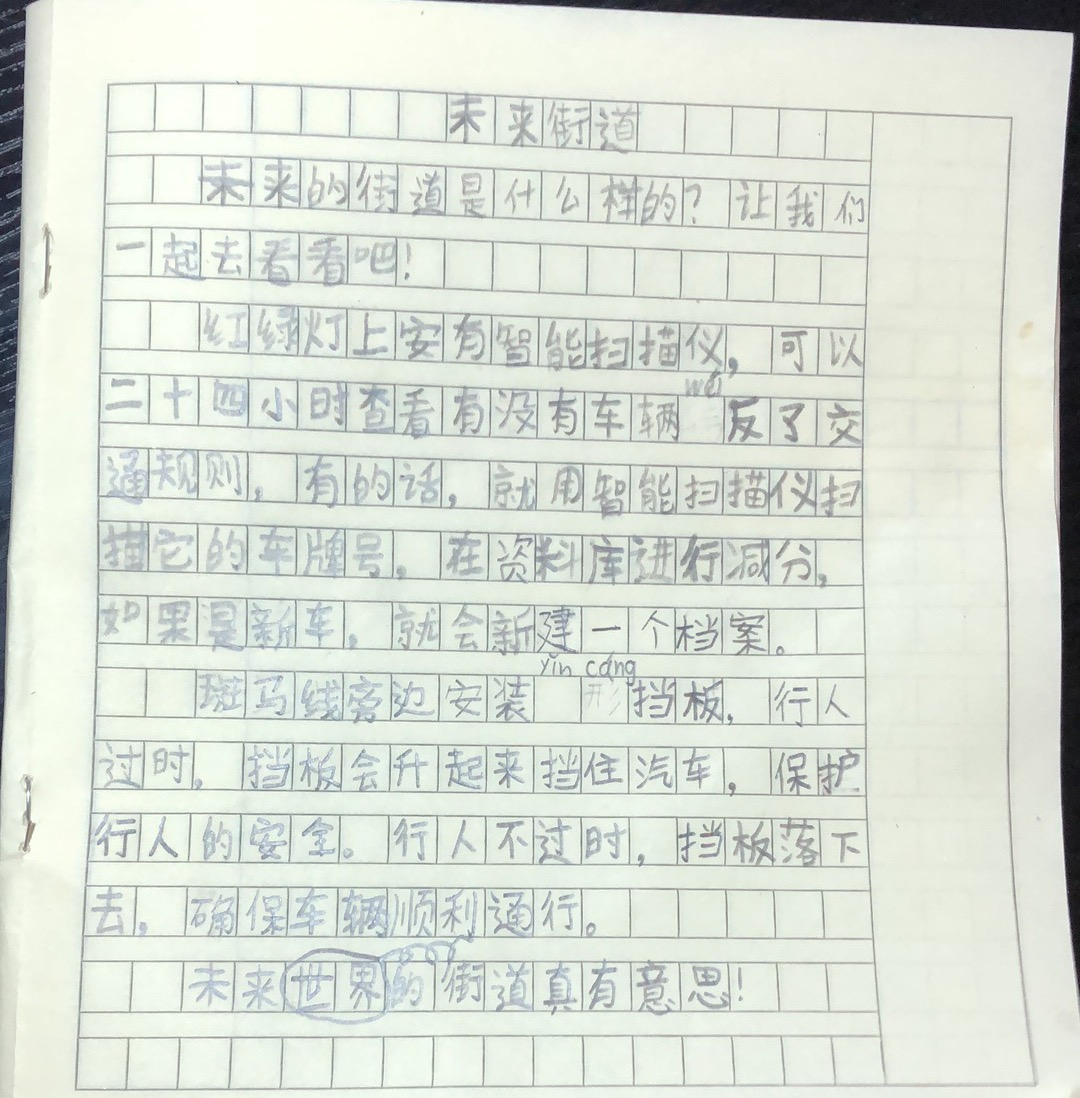 未来街道
未来的街道是什么样的?让我们
一起去看看吧!
红绿灯上安有智能扫描仪,可以
wéi
二十四小时查看有没有车辆 反了交
通规则,有的话,就用智能扫描仪扫
描它的车牌号,在资料库进行减分,
如果是新车,就会新建一个档案。
yǐn cáng
斑马线旁边安装 形挡板,行人
过时,挡板会升起来挡住汽车,保护
行人的安全。行人不过时,挡板落下
去,确保车辆顺利通行。
未来世界的街道真有意思!